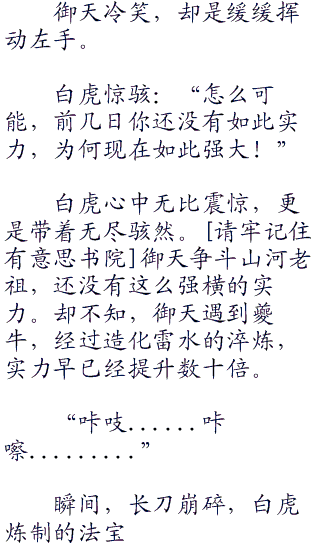 御天冷笑，却是缓缓挥
动左手。
白虎惊骇：“怎么可
能，前几日你还没有如此实
力，为何现在如此强大！”
白虎心中无比震惊，更
是带着无尽骇然。[请牢记住
有意思书院]御天争斗山河老
祖，还没有这么强横的实
力。却不知，御天遇到夔
牛，经过造化雷水的淬炼，
实力早已经提升数十倍。
“咔吱......咔
嚓.........”
瞬间，长刀崩碎，白虎
炼制的法宝